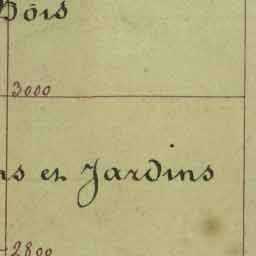 Bois
3000
et Jardins
2800